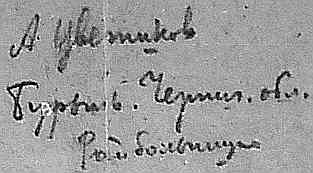 А Цветиков
Гурьть. Черниг. обл.
Райбольница